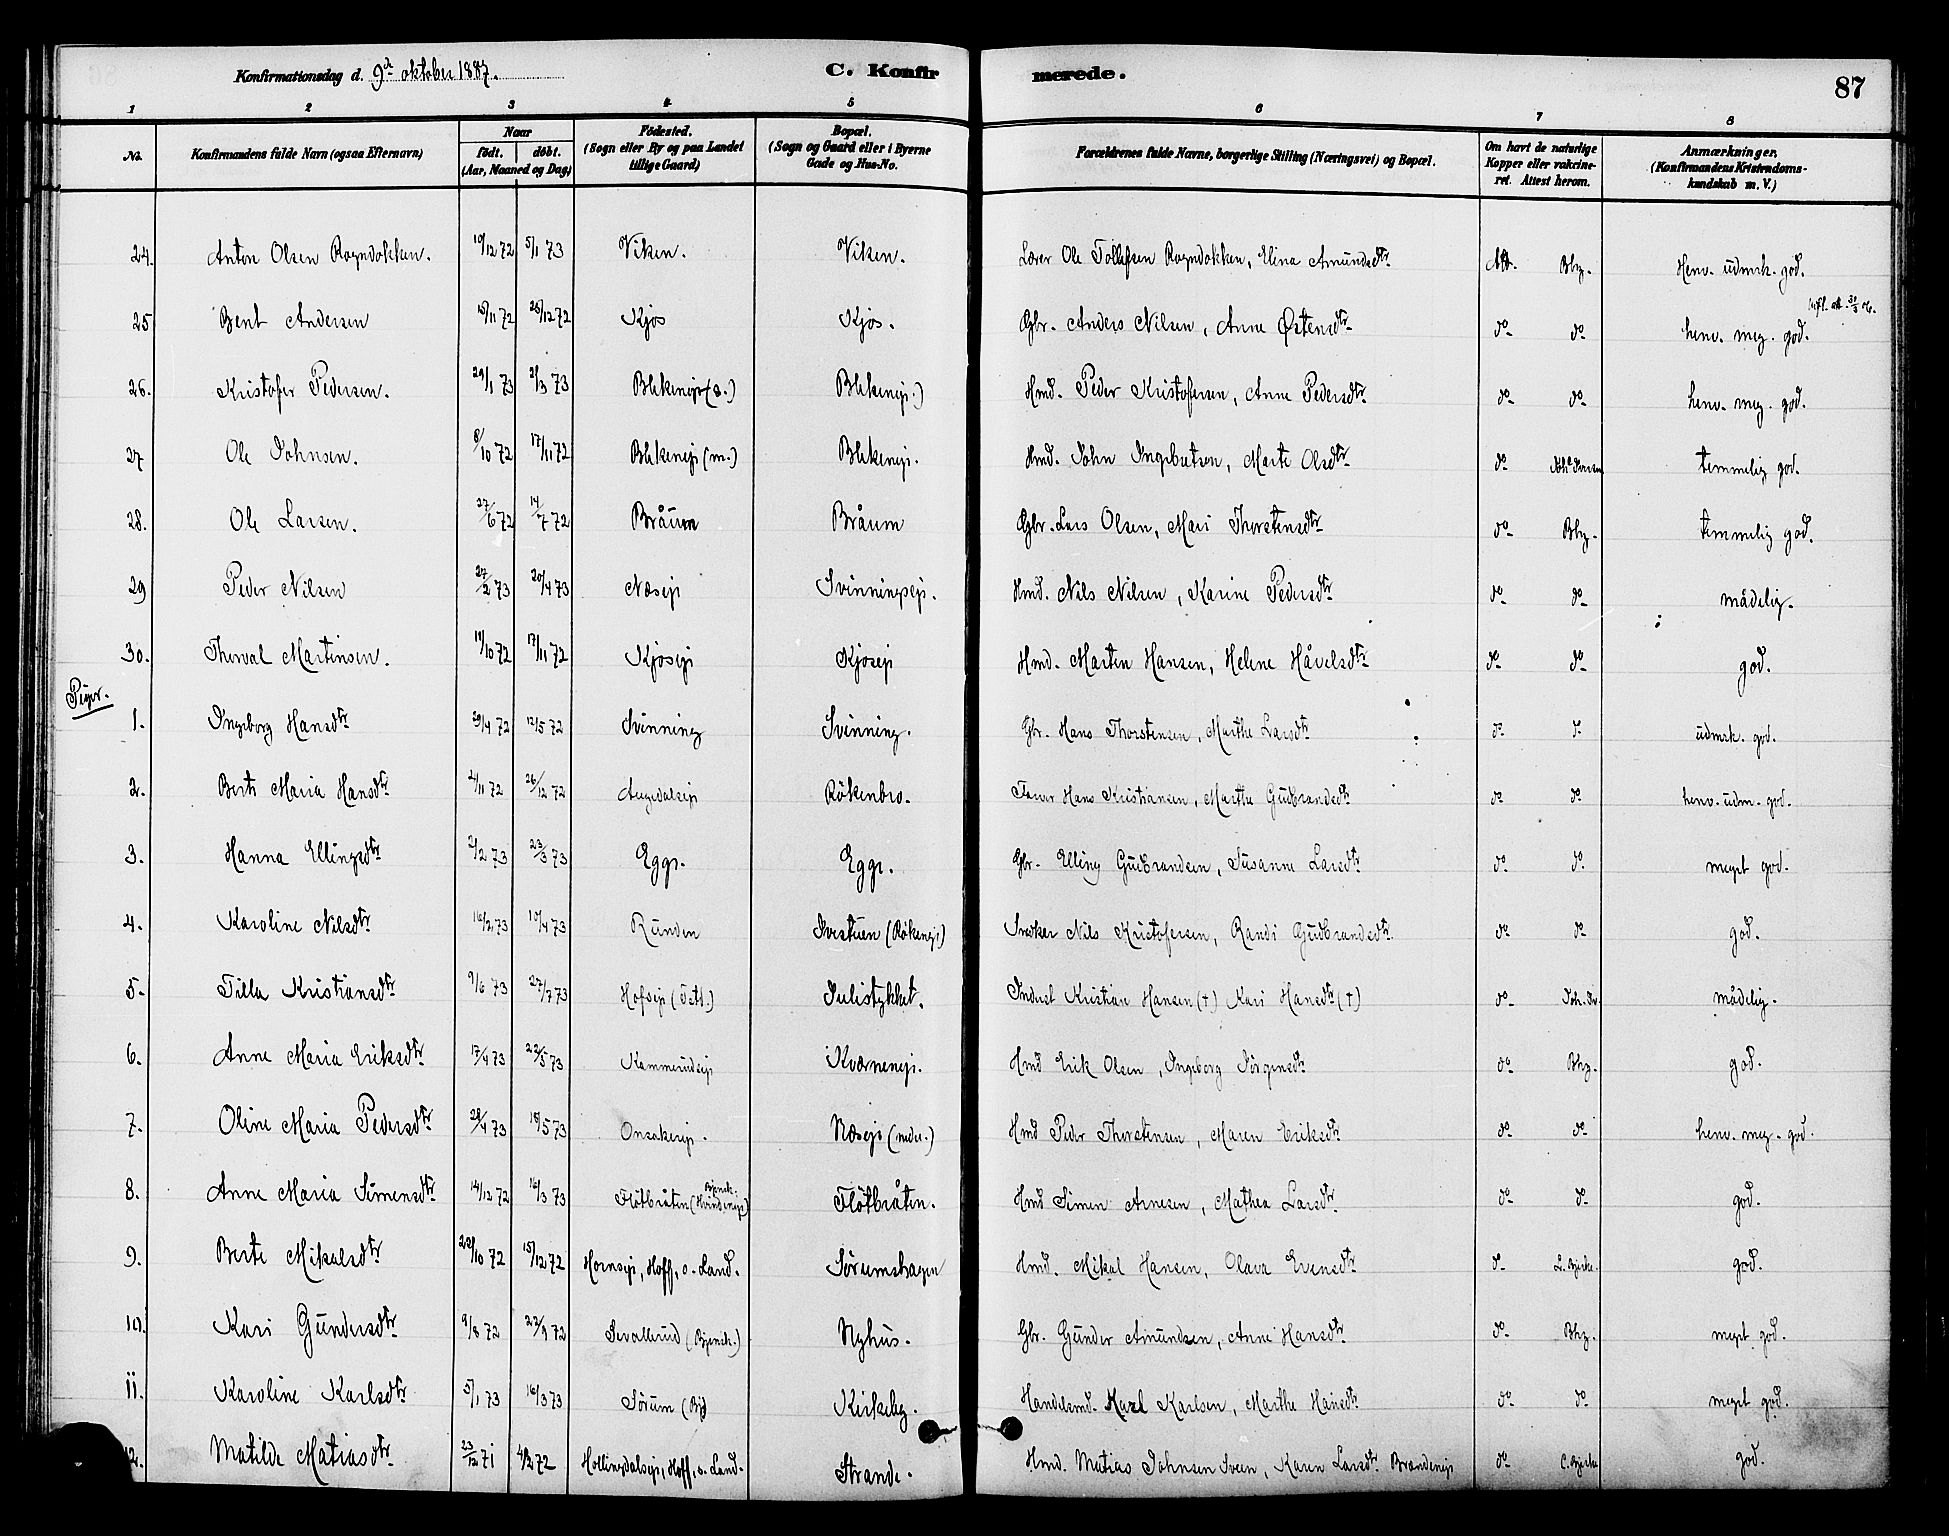 Konfirmationsdag d. 9de oktober 1887. C. Konfirmerede. 87
1 2 3 4 5 6 7 8
No. Konfirmandens fulde Navn (ogsaa Efternavn) Naar født. døbt. (Aar, Maaned og Dag) Fødested. (Sogn eller By og paa Landet tillige Gaard) Bopæl. (Sogn og Gaard eller i Byerne Gade og Hus-No. Forældrenes fulde Navne, borgerlige Stilling (Næringsvei) og Bopæl. Om havt de naturlige Kopper eller vakcineret. Attest herom. Anmærkninger. (Konfirmandens Kristendomskundskab m. V.)
24. Anton Olsen Rogndokken. 10/12 72 5/1 73 Viken. Viken. Lærer Ole Tollefsen Rogndokken, Elina Amundsdtr Att. Bhg. Henv. udmrk. god.
25 Bent Andersen 15/11 72 26/12 72 Kjos Kjos. Gbr. Anders Nilsen, Anne Østensdtr do do henv. meg. god.
26. Kristofer Pedersen. 29/1 73 2/3 73 Blekenejr (s.) Blekenejr.) Hmd. Peder Kristofersen, Anne Pedersdtr do do henv. meg. god.
27 Ole Johnsen. 8/10 72 17/11 72 Blekenejr (m.) Blekenejr. Hmd. John Ingebretsen, Marte Olsdtr do temmelig god.
28. Ole Larsen. 27/6 72 14/7 72 Bråum Bråum Gbr. Lars Olsen, Mari Thorstensdtr do Bhg. temmelig god.
29 Peder Nilsen 27/2 73 20/4 73 Næsejr Svinningsejr. Hmd. Nils Nilsen, Karine Pedersdtr do do mådelig.
30. Thorval Martinsen. 11/10 72 17/11 72 Kjosejr Kjosejr Hmd. Martin Hansen, Helene Håvelsdtr do do god.
Piger.
1. Ingeborg Hansdtr 29/4 72 12/5 72 Svinning Svinning. Gbr. Hans Thorstensen, Marthe Larsdtr do do udmrk. god.
2. Berte Maria Hansdtr 2/11 72 26/12 72 Røkenbro. Hans Kristiansen, Marthe Gudbrandsdtr do do henv. udm. god.
3. Hanna Ellingsdtr 2/2 73 23/3 73 Egge. Egge. Gbr. Elling Gudbrandsen, Susanne Larsdtr do do meget god.
4. Karoline Nilsdtr 16/2 73 10/4 73 Runden Ivestuen (Røkenejr) Snedker Nils Kristofersen, Randi Gudbrandsdtr. do do god.
5. Tilla Kristiansdtr 9/6 73 27/7 73 Hofsejr Julistykket. Inderst Kristian Hansen (†) Kari Hansdtr (†) do mådelig.
6. Anne Maria Eriksdtr 17/4 73 22/5 73 Kammerudsejr Kværnenejr. Hmd Erik Olsen, Ingeborg Jørgensdtr do Bhg. god.
7. Oline Maria Pedersdtr 28/4 73 18/5 73 Onsakerejr. Næsejr (nedre.) Hmd Peder Thorstensen, Maren Eriksdtr do do henv. meg. god.
8. Anne Maria Simensdtr 14/12 72 16/3 73 Fløtbråten Fløtbråten. Hmd Simen Arnesen, Mathea Larsdtr do do god.
9. Berte Mikalsdtr 22/10 72 15/12 72 Hornsejr, Hoff, ø. Land. Sørumshagen Hmd. Mikal Hansen, Olava Evensdtr do L. Bjerke. god.
10. Kari Gundersdtr 9/8 72 22/9 72 Sevallerud (Bjonek.) Nyhus. Gbr. Gunder Amundsen, Anne Hansdtr do Bhg. meget god.
11. Karoline Karlsdtr 5/1 73 16/3 73 Sørum Kirkeby. Handelsmd. Karl Karlsen, Marthe Hansdtr do do meget god.
12. Matilde Matiasdtr 23/12 71 4/2 72 Hollingdalsejr, Hoff, ø. Land. Strande. Hmd. Matias Johnsen Sveen, Karen Larsdtr Brandenejr do god.